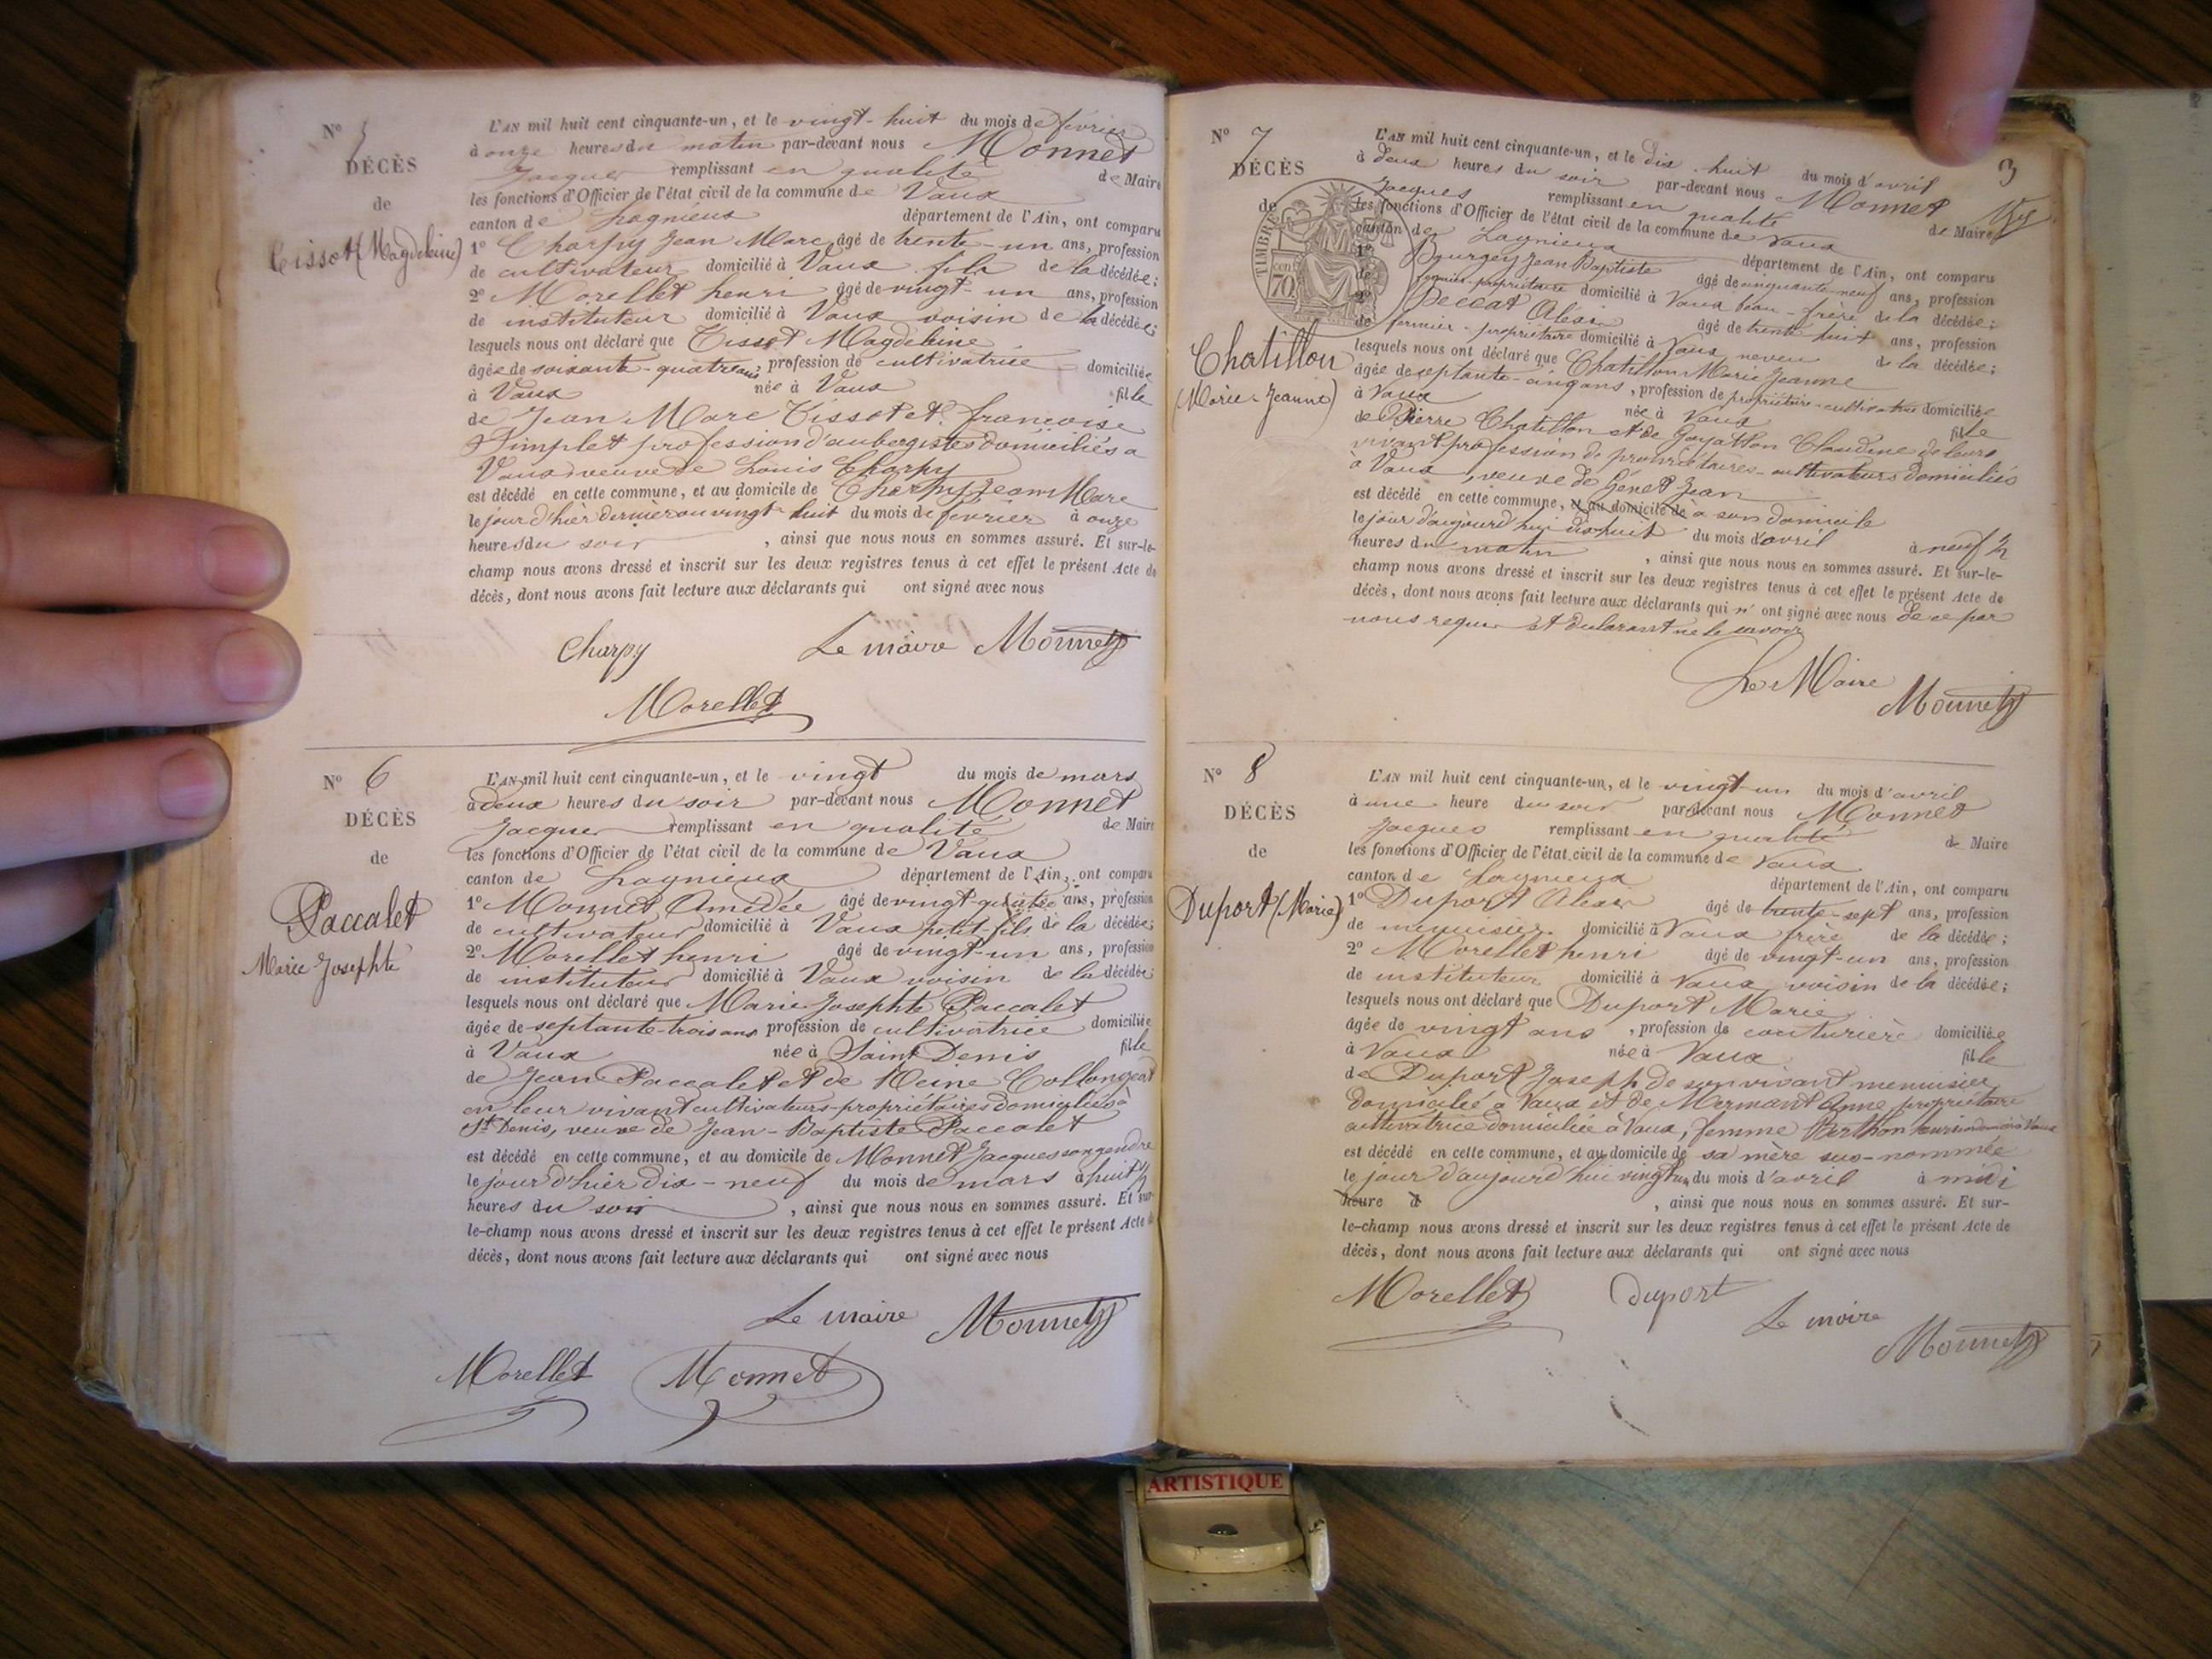 N° 5
DÉCÈS
de
Tissot (Magdeleine)
L'AN mil huit cent cinquante-un, et le vingt-huit du mois de février
à onze heures du matin par-devant nous Monnet
Jacques remplissant en qualité de Maire
les fonctions d'Officier de l'état civil de la commune de Vaux
canton de Lagnieux département de l'Ain, ont comparu
1° Charpy Jean Marc, âgé de trente-un ans, profession
de cultivateur domicilié à Vaux fils de la décédée;
2° Morellet henri âgé de vingt-un ans, profession
de instituteur domicilié à Vaux voisin de la décédée;
lesquels nous ont déclaré que Tissot Magdeleine
âgée de soixante-quatre ans, profession de cultivatrice domiciliée
à Vaux née à Vaux fille
de Jean Marc Tissot et françoise
Simplet profession d'aubergistes domiciliés à
Vaux veuve de Louis Charpy
est décédé en cette commune, et au domicile de Charpy Jean Marc
le jour d'hier vingt huit du mois de février à onze
heures du soir, ainsi que nous nous en sommes assuré. Et sur-le-
champ nous avons dressé et inscrit sur les deux registres tenus à cet effet le présent Acte de
décès, dont nous avons fait lecture aux déclarants qui ont signé avec nous
Charpy Le maire Monnet
Morellet
N° 6
DÉCÈS
de
Paccalet
Marie Josephte
L'AN mil huit cent cinquante-un, et le vingt du mois de mars
à deux heures du soir par-devant nous Monnet
Jacques remplissant en qualité de Maire
les fonctions d'Officier de l'état civil de la commune de Vaux
canton de Lagnieux département de l'Ain, ont comparu
1° Monnet Amédée âgé de vingt-quatre ans, profession
de cultivateur domicilié à Vaux petit-fils de la décédée;
2° Morellet henri âgé de vingt-un ans, profession
de instituteur domicilié à Vaux voisin de la décédée
lesquels nous ont déclaré que Marie Josephte Paccalet
âgée de septante-trois ans profession de cultivatrice domiciliée
à Vaux née à Saint Denis fille
de Jean Paccalet et de Reine Collongeat
en leur vivant cultivateurs-propriétaires domiciliés à
St Denis, veuve de Jean-Baptiste Paccalet
est décédé en cette commune, et au domicile de Monnet Jacques son gendre
le jour d'hier dix-neuf du mois de mars à huit ½
heures du soir, ainsi que nous nous en sommes assuré. Et sur-
le-champ nous avons dressé et inscrit sur les deux registres tenus à cet effet le présent Acte de
décès, dont nous avons fait lecture aux déclarants qui ont signé avec nous
Le maire Monnet
Morellet Monnet
3
N° 7
DÉCÈS
de
TIMBRE
70
Chatillon
(Marie-Jeanne)
L'AN mil huit cent cinquante-un, et le dix-huit du mois d'avril
à deux heures du soir par-devant nous Monnet
Jacques remplissant en qualité de Maire
les fonctions d'Officier de l'état civil de la commune de Vaux
canton de Lagnieux département de l'Ain, ont comparu
1° Bourgey Jean Baptiste âgé de cinquante-neuf ans, profession
de fermier-propriétaire domicilié à Vaux beau-frère de la décédée;
2° Peccat Alexis âgé de trente huit ans, profession
de fermier-propriétaire domicilié à Vaux neveu de la décédée;
lesquels nous ont déclaré que Chatillon Marie Jeanne
âgée de septante-cinq ans, profession de propriétaire-cultivatrice domiciliée
à Vaux née à Vaux fille
de Pierre Chatillon et de Goyatton Claudine de leurs
vivant profession de propriétaires-cultivateurs domiciliés
à Vaux, veuve de Génet Jean
est décédé en cette commune, et au domicile de à son domicile
le jour d'aujourd'hui dix huit du mois d'avril à neuf ½
heures du matin, ainsi que nous nous en sommes assuré. Et sur-le-
champ nous avons dressé et inscrit sur les deux registres tenus à cet effet le présent Acte de
décès, dont nous avons fait lecture aux déclarants qui n' ont signé avec nous de ce par
nous requis et déclarant ne le savoir
Le Maire
Monnet
N° 8
DÉCÈS
de
Duport (Marie)
L'AN mil huit cent cinquante-un, et le vingt-un du mois d'avril
à une heure du soir par-devant nous Monnet
Jacques remplissant en qualité de Maire
les fonctions d'Officier de l'état civil de la commune de Vaux
canton de Lagnieux département de l'Ain, ont comparu
1° Duport Alexis âgé de trente-sept ans, profession
de menuisier domicilié à Vaux frère de la décédée;
2° Morellet henri âgé de vingt-un ans, profession
de instituteur domicilié à Vaux voisin de la décédée;
lesquels nous ont déclaré que Duport Marie
âgée de vingt ans, profession de couturière domiciliée
à Vaux née à Vaux fille
de Duport Joseph de son vivant menuisier
domicilié à Vaux et de Mermant Anne propriétaire
cultivatrice domiciliée à Vaux, femme Berthon
est décédé en cette commune, et au domicile de sa mère sus-nommée
le jour d'aujourd'hui vingt un du mois d'avril à midi
heure d, ainsi que nous nous en sommes assuré. Et sur-
le-champ nous avons dressé et inscrit sur les deux registres tenus à cet effet le présent Acte de
décès, dont nous avons fait lecture aux déclarants qui ont signé avec nous
Morellet Duport
Le maire
Monnet
ARTISTIQUE